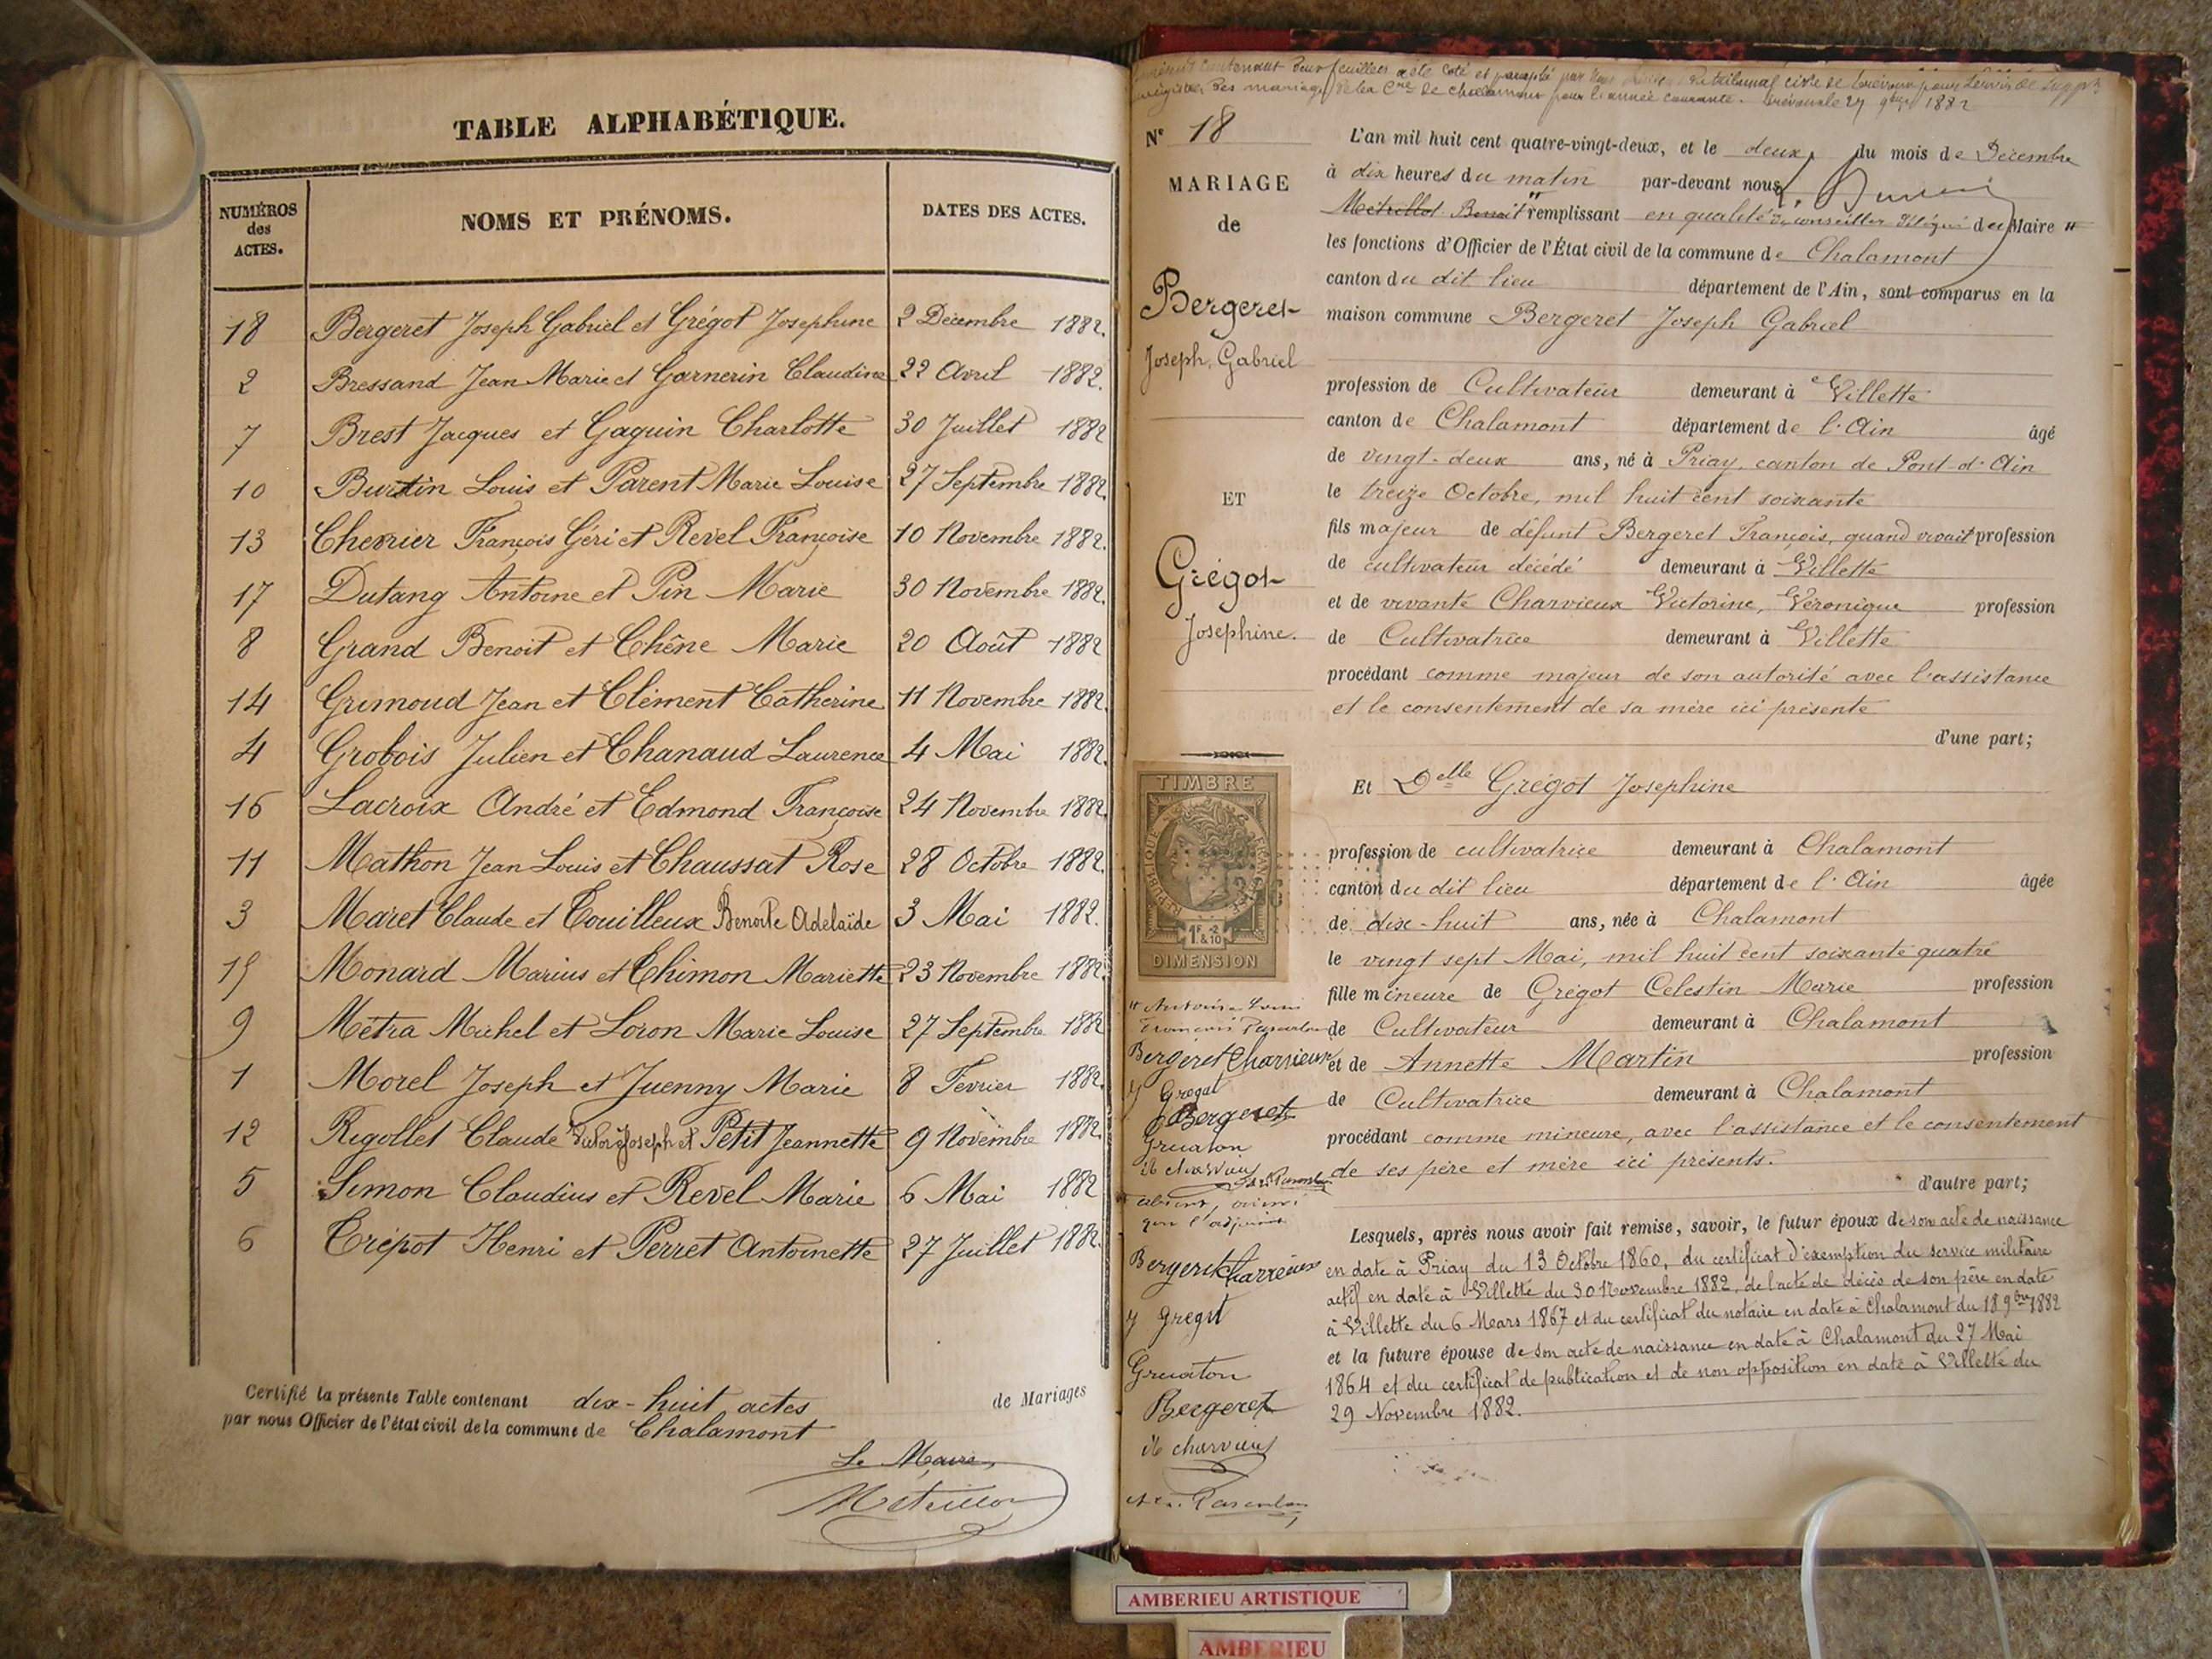 TABLE ALPHABÉTIQUE.
NUMÉROS des ACTES. NOMS ET PRÉNOMS. DATES DES ACTES.
18 Bergeret Joseph Gabriel et Grégot Josephine 2 Décembre 1882.
2 Bressand Jean Marie et Garnerin Claudine 22 Avril 1882.
7 Brest Jacques et Gaguin Charlotte 30 Juillet 1882
10 Burtin Louis et Parent Marie Louise 27 Septembre 1882.
13 Cherrier François Géri et Revel Françoise 10 Novembre 1882.
17 Dutang Antoine et Pin Marie 30 Novembre 1882.
8 Grand Benoit et Chêne Marie 20 Août 1882
14 Grimoud Jean et Clément Catherine 11 Novembre 1882.
4 Grobois Julien et Chanaud Laurence 4 Mai 1882.
16 Lacroix André et Edmond Françoise 24 Novembre 1882.
11 Mathon Jean Louis et Chaussat Rose 28 Octobre 1882.
3 Maret Claude et Touilleux Benoite Adelaïde 3 Mai 1882.
15 Monard Marius et Chimon Mariette 23 Novembre 1882.
9 Métra Michel et Loron Marie Louise 27 Septembre 1882
1 Morel Joseph et Juenny Marie 8 Fevrier 1882.
12 Rigollet Claude Joseph et Petit Jeannette 9 Novembre 1882.
5 Simon Claudius et Revel Marie 6 Mai 1882
6 Trépot Henri et Perret Antoinette 27 Juillet 1882.
Certifié la présente Table contenant dix-huit actes de Mariages
par nous Officier de l'état civil de la commune de Chalamont
Le Maire,
Métrillot
contenant deux feuillets a été coté et paraphé par du tribunal civil de Trévoux pour servir de
registre des mariages de la Cne de Chalamont pour l'année courante. Trévoux le 27 9bre 1882
N° 18
MARIAGE
de
Bergeret
Joseph, Gabriel
ET
Grégot
Josephine.
L'an mil huit cent quatre-vingt-deux, et le deux, du mois de Décembre
à dix heures du matin par-devant nous,
Métrillot Benoit remplissant en qualité de conseiller délégué du Maire
les fonctions d'Officier de l'État civil de la commune de Chalamont
canton du dit lieu département de l'Ain, sont comparus en la
maison commune Bergeret Joseph Gabriel
profession de Cultivateur demeurant à Villette
canton de Chalamont département de l'Ain âgé
de vingt-deux ans, né à Priay, canton de Pont-d'Ain
le treize Octobre, mil huit cent soixante
fils majeur de défunt Bergeret François, quand vivait profession
de cultivateur décédé demeurant à Villette
et de vivante Charvieux Victorine, Véronique profession
de Cultivatrice demeurant à Villette
procédant comme majeur de son autorité avec l'assistance
et le consentement de sa mère ici présente
d'une part;
Et Delle Grégot Josephine
profession de cultivatrice demeurant à Chalamont
canton du dit lieu département de l'Ain âgée
de dix-huit ans, née à Chalamont
le vingt sept Mai, mil huit cent soixante quatre
fille mineure de Grégot Celestin Marie profession
de Cultivateur demeurant à Chalamont
et de Annette Martin profession
de Cultivatrice demeurant à Chalamont
procédant comme mineure, avec l'assistance et le consentement
de ses père et mère ici présents.
d'autre part;
Lesquels, après nous avoir fait remise, savoir, le futur époux de son acte de naissance
en date à Priay du 13 Octobre 1860, du certificat d'exemption du service militaire
actif en date à Villette du 30 Novembre 1882, de l'acte de décès de son père en date
à Villette du 6 Mars 1867 et du certificat du notaire en date à Chalamont du 18 9bre 1882
et la future épouse de son acte de naissance en date à Chalamont du 27 Mai
1864 et du certificat de publication et de non opposition en date à Villette du
29 Novembre 1882.
TIMBRE
REPUBLIQUE FRANÇAISE
1F & 2/10
DIMENSION
Bergeret Charvieux
J Gregot
Bergeret
Gruaton
Bergeret Charvieux
J Gregot
Gruaton
Bergeret
charvieux
AMBERIEU ARTISTIQUE
AMBERIEU